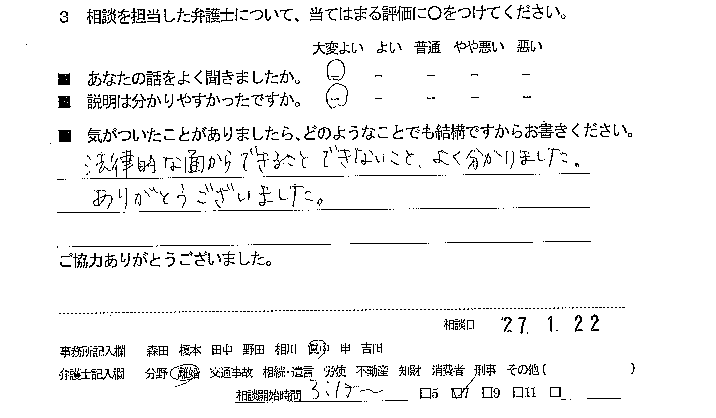 3 相談を担当した弁護士について、当てはまる評価に○をつけてください。
大変よい よい 普通 やや悪い 悪い
■ あなたの話をよく聞きましたか。 － － － －
■ 説明は分かりやすかったですか。 － － － － －
■ 気がついたことがありましたら、どのようなことでも結構ですからお書きください。
法律的な面からできることとできないこと、よく分かりました。
ありがとうございました。
ご協力ありがとうございました。
相談日 27.1.22
事務所記入欄 森田 榎本 田中 野田 相川 申 吉田
弁護士記入欄 分野 離婚 交通事故 相続・遺言 労使 不動産 知財 消費者 刑事 その他( )
相談開始時間 □5 □7 □9 □11 □